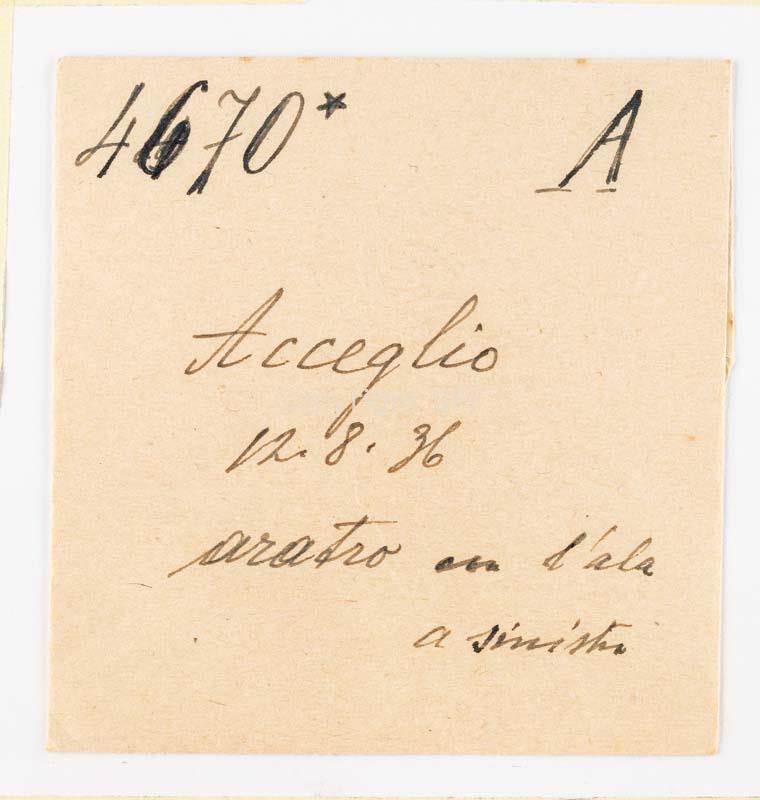 4670* A
Acceglio
12.8.36
aratro con l'ala
a sinistr